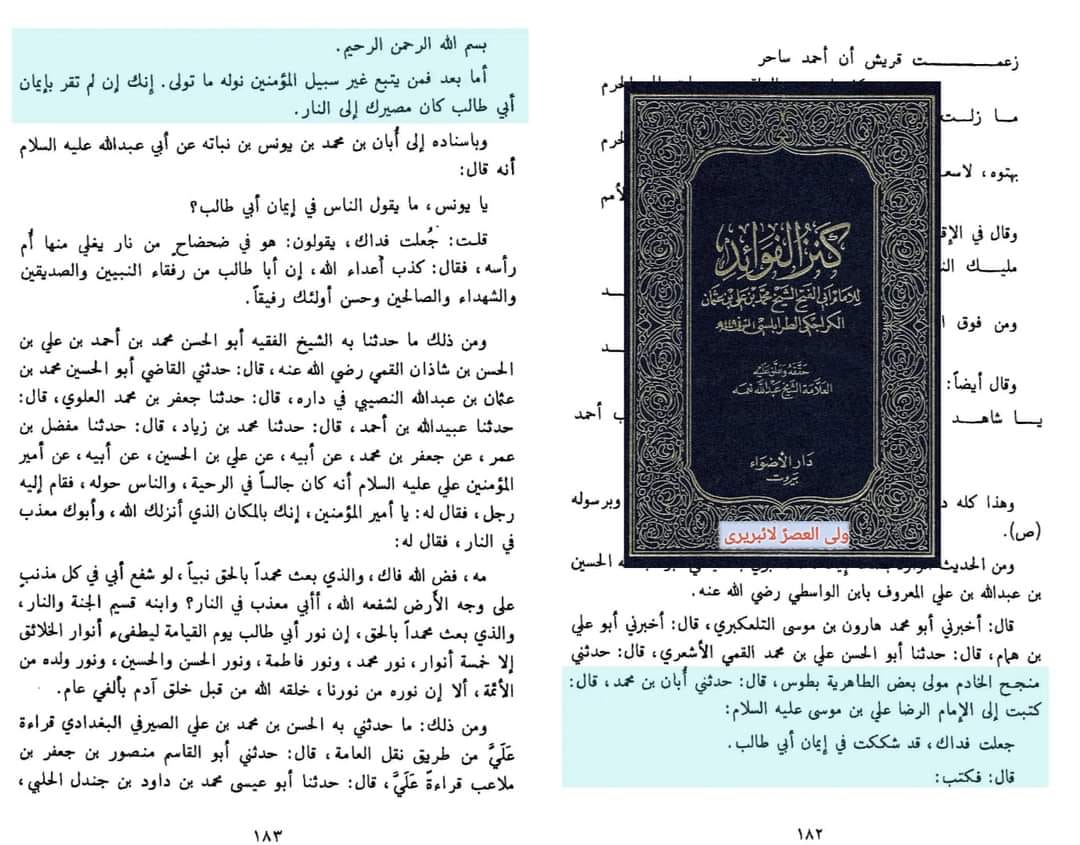 زعمـــت قريش أن أحمد ساحر
الحرم
مـا زلـت
الحرم
بهتوه، لاسعد
الأمم
وقال في الإق
مليـك الن
ـد
ومن فوق ا
ـد
وقال أيضاً:
يـا شاهـد
ب أحمد
وهذا كله د
وبرسوله
(ص).
ومن الحديث
الحسين
بن عبدالله بن علي المعروف بابن الواسطي رضي الله عنه.
قال: أخبرني أبو محمد هارون بن موسى التلعكبري، قال: أخبرني أبو علي
بن همام، قال: حدثنا أبو الحسن علي بن محمد القمي الأشعري، قال: حدثني
منجح الخادم مولى بعض الطاهرية بطوس، قال: حدثني أُبان بن محمد، قال:
كتبت إلى الإمام الرضا علي بن موسى عليه السلام:
جعلت فداك، قد شككت في إيمان أبي طالب.
قال: فكتب:
١٨٢
كنز الفوائد
للامام أبي الفتح الشيخ محمد بن علي بن عثمان
الكراجكي الطرابلسي المتوفى ٤٤٩هـ
حققه وعلق عليه
العلامة الشيخ عبدالله نعمه
دار الأضواء
بيروت
ولی العصرؑ لائبریری
بسم الله الرحمن الرحيم.
أما بعد فمن يتبع غير سبيل المؤمنين نوله ما تولى. إنك إن لم تقر بإيمان
أبي طالب كان مصيرك إلى النار.
وباسناده إلى أُبان بن محمد بن يونس بن نباته عن أبي عبدالله عليه السلام
أنه قال:
يا يونس، ما يقول الناس في إيمان أبي طالب؟
قلت: جُعلت فداك، يقولون: هو في ضحضاح من نار يغلي منها أُم
رأسه، فقال: كذب أعداء الله، إن أبا طالب من رفقاء النبيين والصديقين
والشهداء والصالحين وحسن أولئك رفيقاً.
ومن ذلك ما حدثنا به الشيخ الفقيه أبو الحسن محمد بن أحمد بن علي بن
الحسن بن شاذان القمي رضي الله عنه، قال: حدثني القاضي أبو الحسين محمد بن
عثمان بن عبدالله النصيبي في داره، قال: حدثنا جعفر بن محمد العلوي، قال:
حدثنا عبيدالله بن أحمد، قال: حدثنا محمد بن زياد، قال: حدثنا مفضل بن
عمر، عن جعفر بن محمد، عن أبيه، عن علي بن الحسين، عن أبيه، عن أمير
المؤمنين علي عليه السلام أنه كان جالساً في الرحبة، والناس حوله، فقام إليه
رجل، فقال له: يا أمير المؤمنين، إنك بالمكان الذي أنزلك الله، وأبوك معذب
في النار، فقال له:
مه، فض الله فاك، والذي بعث محمداً بالحق نبياً، لو شفع أبي في كل مذنب
على وجه الأرض لشفعه الله، أأبي معذب في النار؟ وابنه قسيم الجنة والنار،
والذي بعث محمداً بالحق، إن نور أبي طالب يوم القيامة ليطفىء أنوار الخلائق
إلا خمسة أنوار، نور محمد، ونور فاطمة، ونور الحسن والحسين، ونور ولده من
الأئمة، ألا إن نوره من نورنا، خلقه الله من قبل خلق آدم بألفي عام.
ومن ذلك: ما حدثني به الحسن بن محمد بن علي الصيرفي البغدادي قراءة
عَلَيَّ من طريق نقل العامة، قال: حدثني أبو القاسم منصور بن جعفر بن
ملاعب قراءةً عَلَيَّ، قال: حدثنا أبو عيسى محمد بن داود بن جندل الحلبي،
١٨٣